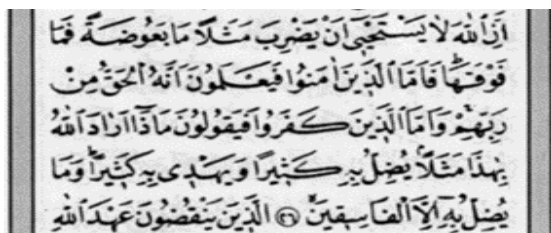 اَنَّ اللّٰهَ لَا يَسْتَحْيٖٓ اَنْ يَضْرِبَ مَثَلًا مَا بَعُوضَةً فَمَا
فَوْقَهَاۜ فَاَمَّا الَّذٖينَ اٰمَنُوا فَيَعْلَمُونَ اَنَّهُ الْحَقُّ مِنْ
رَبِّهِمْۚ وَاَمَّا الَّذٖينَ كَفَرُوا فَيَقُولُونَ مَاذَٓا اَرَادَ اللّٰهُ
بِهٰذَا مَثَلًاۢ يُضِلُّ بِهٖ كَثٖيرًا وَيَهْدٖى بِهٖ كَثٖيرًاۜ وَمَا
يُضِلُّ بِهٖٓ اِلَّا الْفَاسِقٖينَۙ ﴿٢٦﴾ اَلَّذٖينَ يَنْقُضُونَ عَهْدَ اللّٰهِ